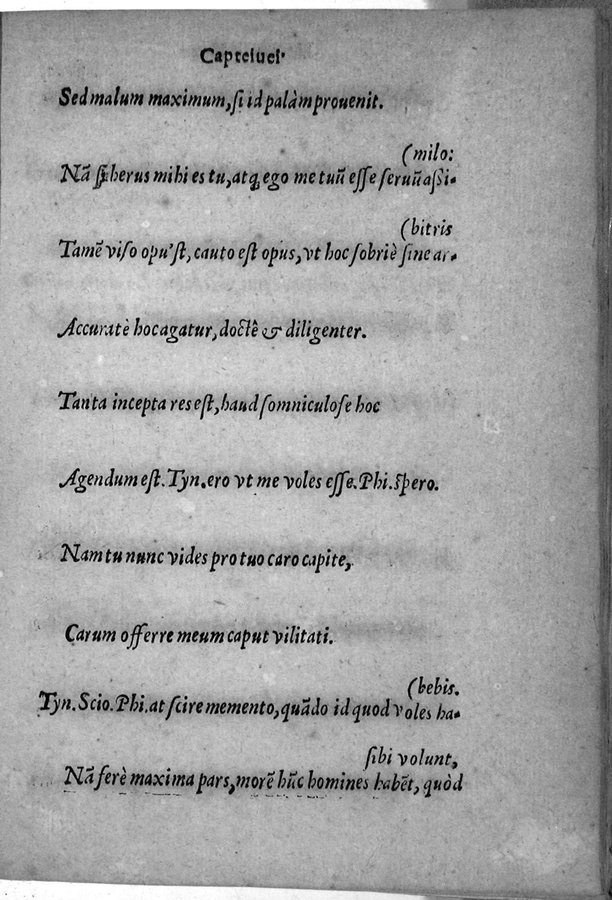 Capteiuei·
Sed malum maximum, ſi id palàm prouenit.
(milo:
Nã ſi herus mihi es tu, atq; ego me tuũ eſſe ſeruũ aßi-
(bitris
Tamẽ viſo opu'ſt, cauto eſt opus, vt hoc ſobriè ſine ar-
Accuratè hoc agatur, doctê & diligenter.
Tanta incepta res eſt, haud ſomniculoſe hoc
Agendum eſt. Tyn. ero vt me voles eſſe. Phi. ſpero.
Nam tu nunc vides pro tuo caro capite,
Carum offerre meum caput vilitati.
(bebis.
Tyn. Scio. Phi. at ſcire memento, quãdo id quod voles ha-
ſibi volunt,
Nã ferè maxima pars, morẽ hũc homines habẽt, quòd